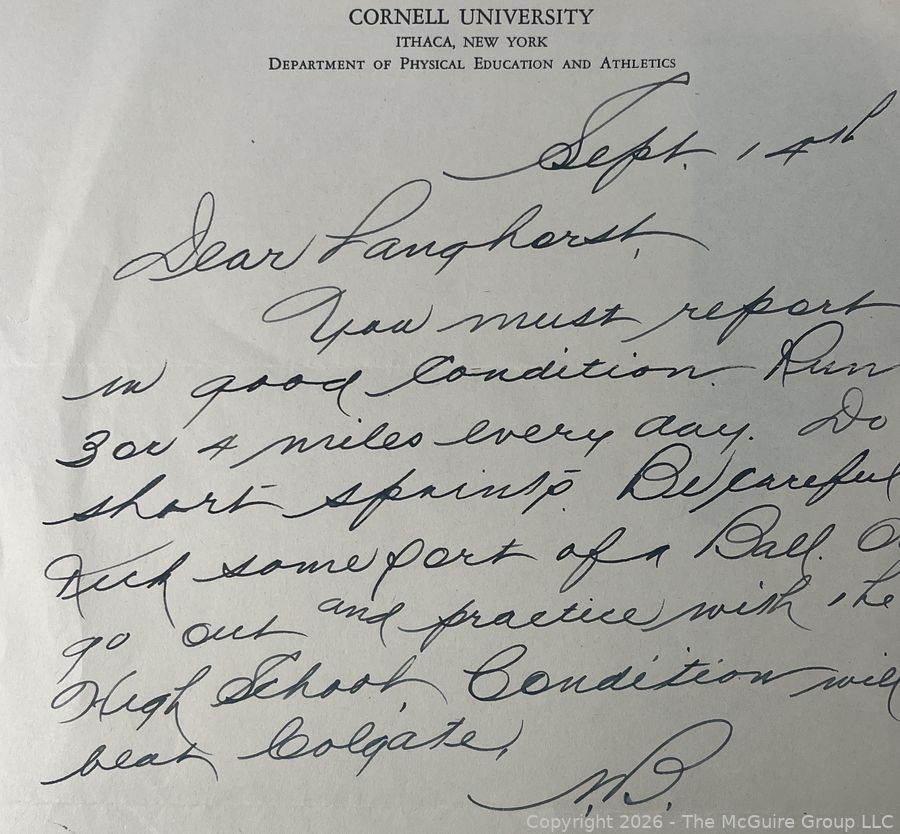 CORNELL UNIVERSITY
ITHACA, NEW YORK
DEPARTMENT OF PHYSICAL EDUCATION AND ATHLETICS
Sept. 14th
Dear Langhorst,
You must report
in good Condition. Run
3 or 4 miles every day. Do
short sprints. Be careful
Kick some sort of a Ball.
go out and practice with the
High School, Condition will
beat Colgate,
N.B.
Copyright 2026 - The McGuire Group LLC